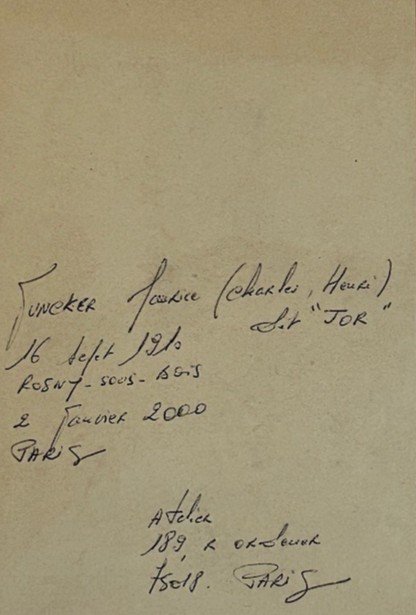 JUNCKER Maurice (Charles, Henri)
dit "JOR"
16 Sept 1910
ROSNY-SOUS-BOIS
2 Janvier 2000
PARIS
Atelier
189, R ORdener
75018. PARIS